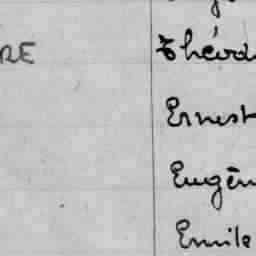 RE Théod
Ernest
Eugèn
Emile